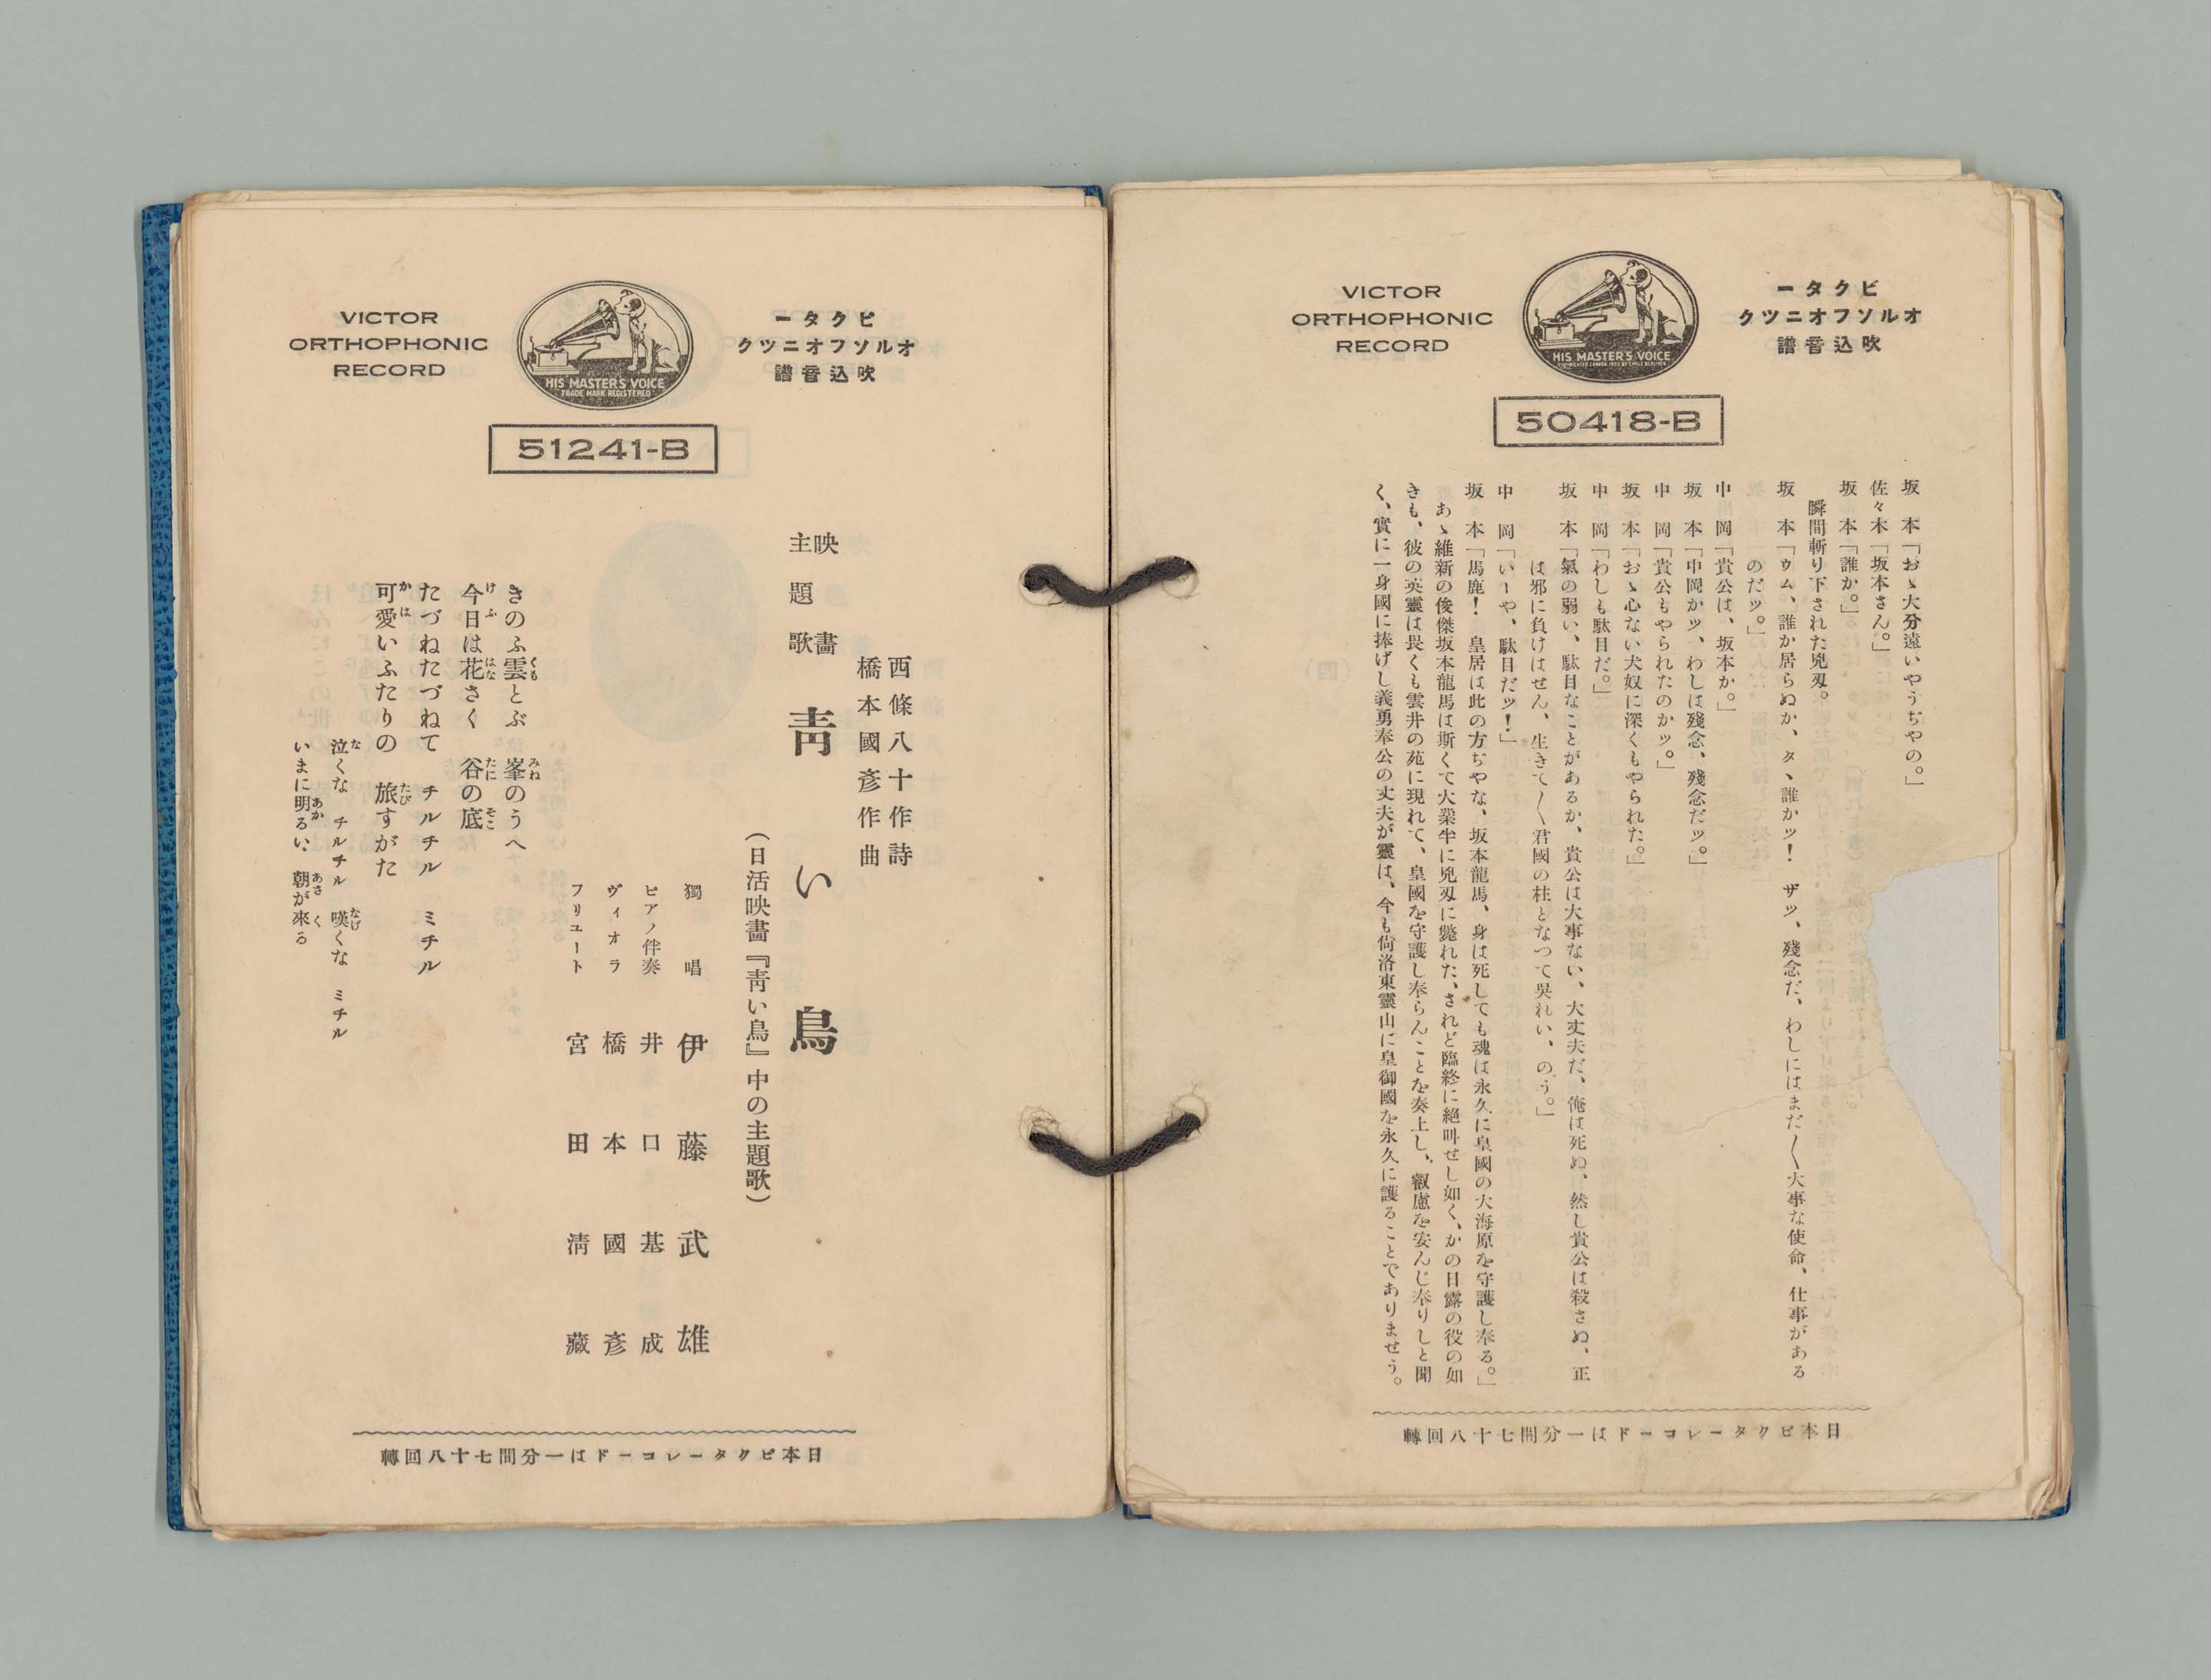 VICTOR
ORTHOPHONIC
RECORD
HIS MASTER'S VOICE
ビクター
オルソフオニツク
吹込音譜
50418-B
坂本「おゝ大分遠いやうぢやの。」
佐々木「坂本さん。」
坂本「誰か。」
瞬間斬り下された兇刄。
坂本「ウム、誰か居らぬか、タヽ誰かッ！　ザツ、殘念だ、わしにはまだ〱大事な使命、仕事がある
のだッ。」
中岡「貴公は、坂本か。」
坂本「中岡かッ、わしは殘念、殘念だッ。」
中岡「貴公もやられたのかッ。」
坂本「おゝ心ない犬奴に深くもやられた。」
中岡「わしも駄目だ。」
坂本「氣の弱い、駄目なことがあるか、貴公は大事ない、大丈夫だ、俺は死ぬ、然し貴公は殺さぬ、正
は邪に負けはせん、生きて〱君國の柱となつて呉れい、のう。」
中岡「いーや、駄目だッ！」
坂本「馬鹿！　皇居は此の方ぢやな、坂本龍馬、身は死しても魂は永久に皇國の大海原を守護し奉る。」
あゝ維新の俊傑坂本龍馬は斯くて大業半に兇刄に斃れた、されど臨終に絶叫せし如く、かの日露の役の如
きも、彼の英靈は畏くも雲井の苑に現れて、皇國を守護し奉らんことを奏上し、叡慮を安んじ奉りしと聞
く、實に一身國に捧げし義勇奉公の丈夫が靈は、今も尙洛東靈山に皇御國を永久に護ることでありませう。
日本ビクターレコードは一分間七十八回轉
VICTOR
ORTHOPHONIC
RECORD
HIS MASTER'S VOICE
TRADE MARK REGISTERED
ビクター
オルソフオニツク
吹込音譜
51241-B
西條八十作詩
橋本國彥作曲
映畫主題歌 靑い鳥
（日活映畫『靑い鳥』中の主題歌）
獨唱 伊藤武雄
ピアノ伴奏 井口基成
ヴィオラ 橋本國彥
フリュート 宮田淸藏
きのふ雲とぶ　峯のうへ
今日は花さく　谷の底
たづねたづねて　チルチル　ミチル
可愛いふたりの　旅すがた
泣くな　チルチル　嘆くな　ミチル
いまに明るい、朝が來る
日本ビクターレコードは一分間七十八回轉